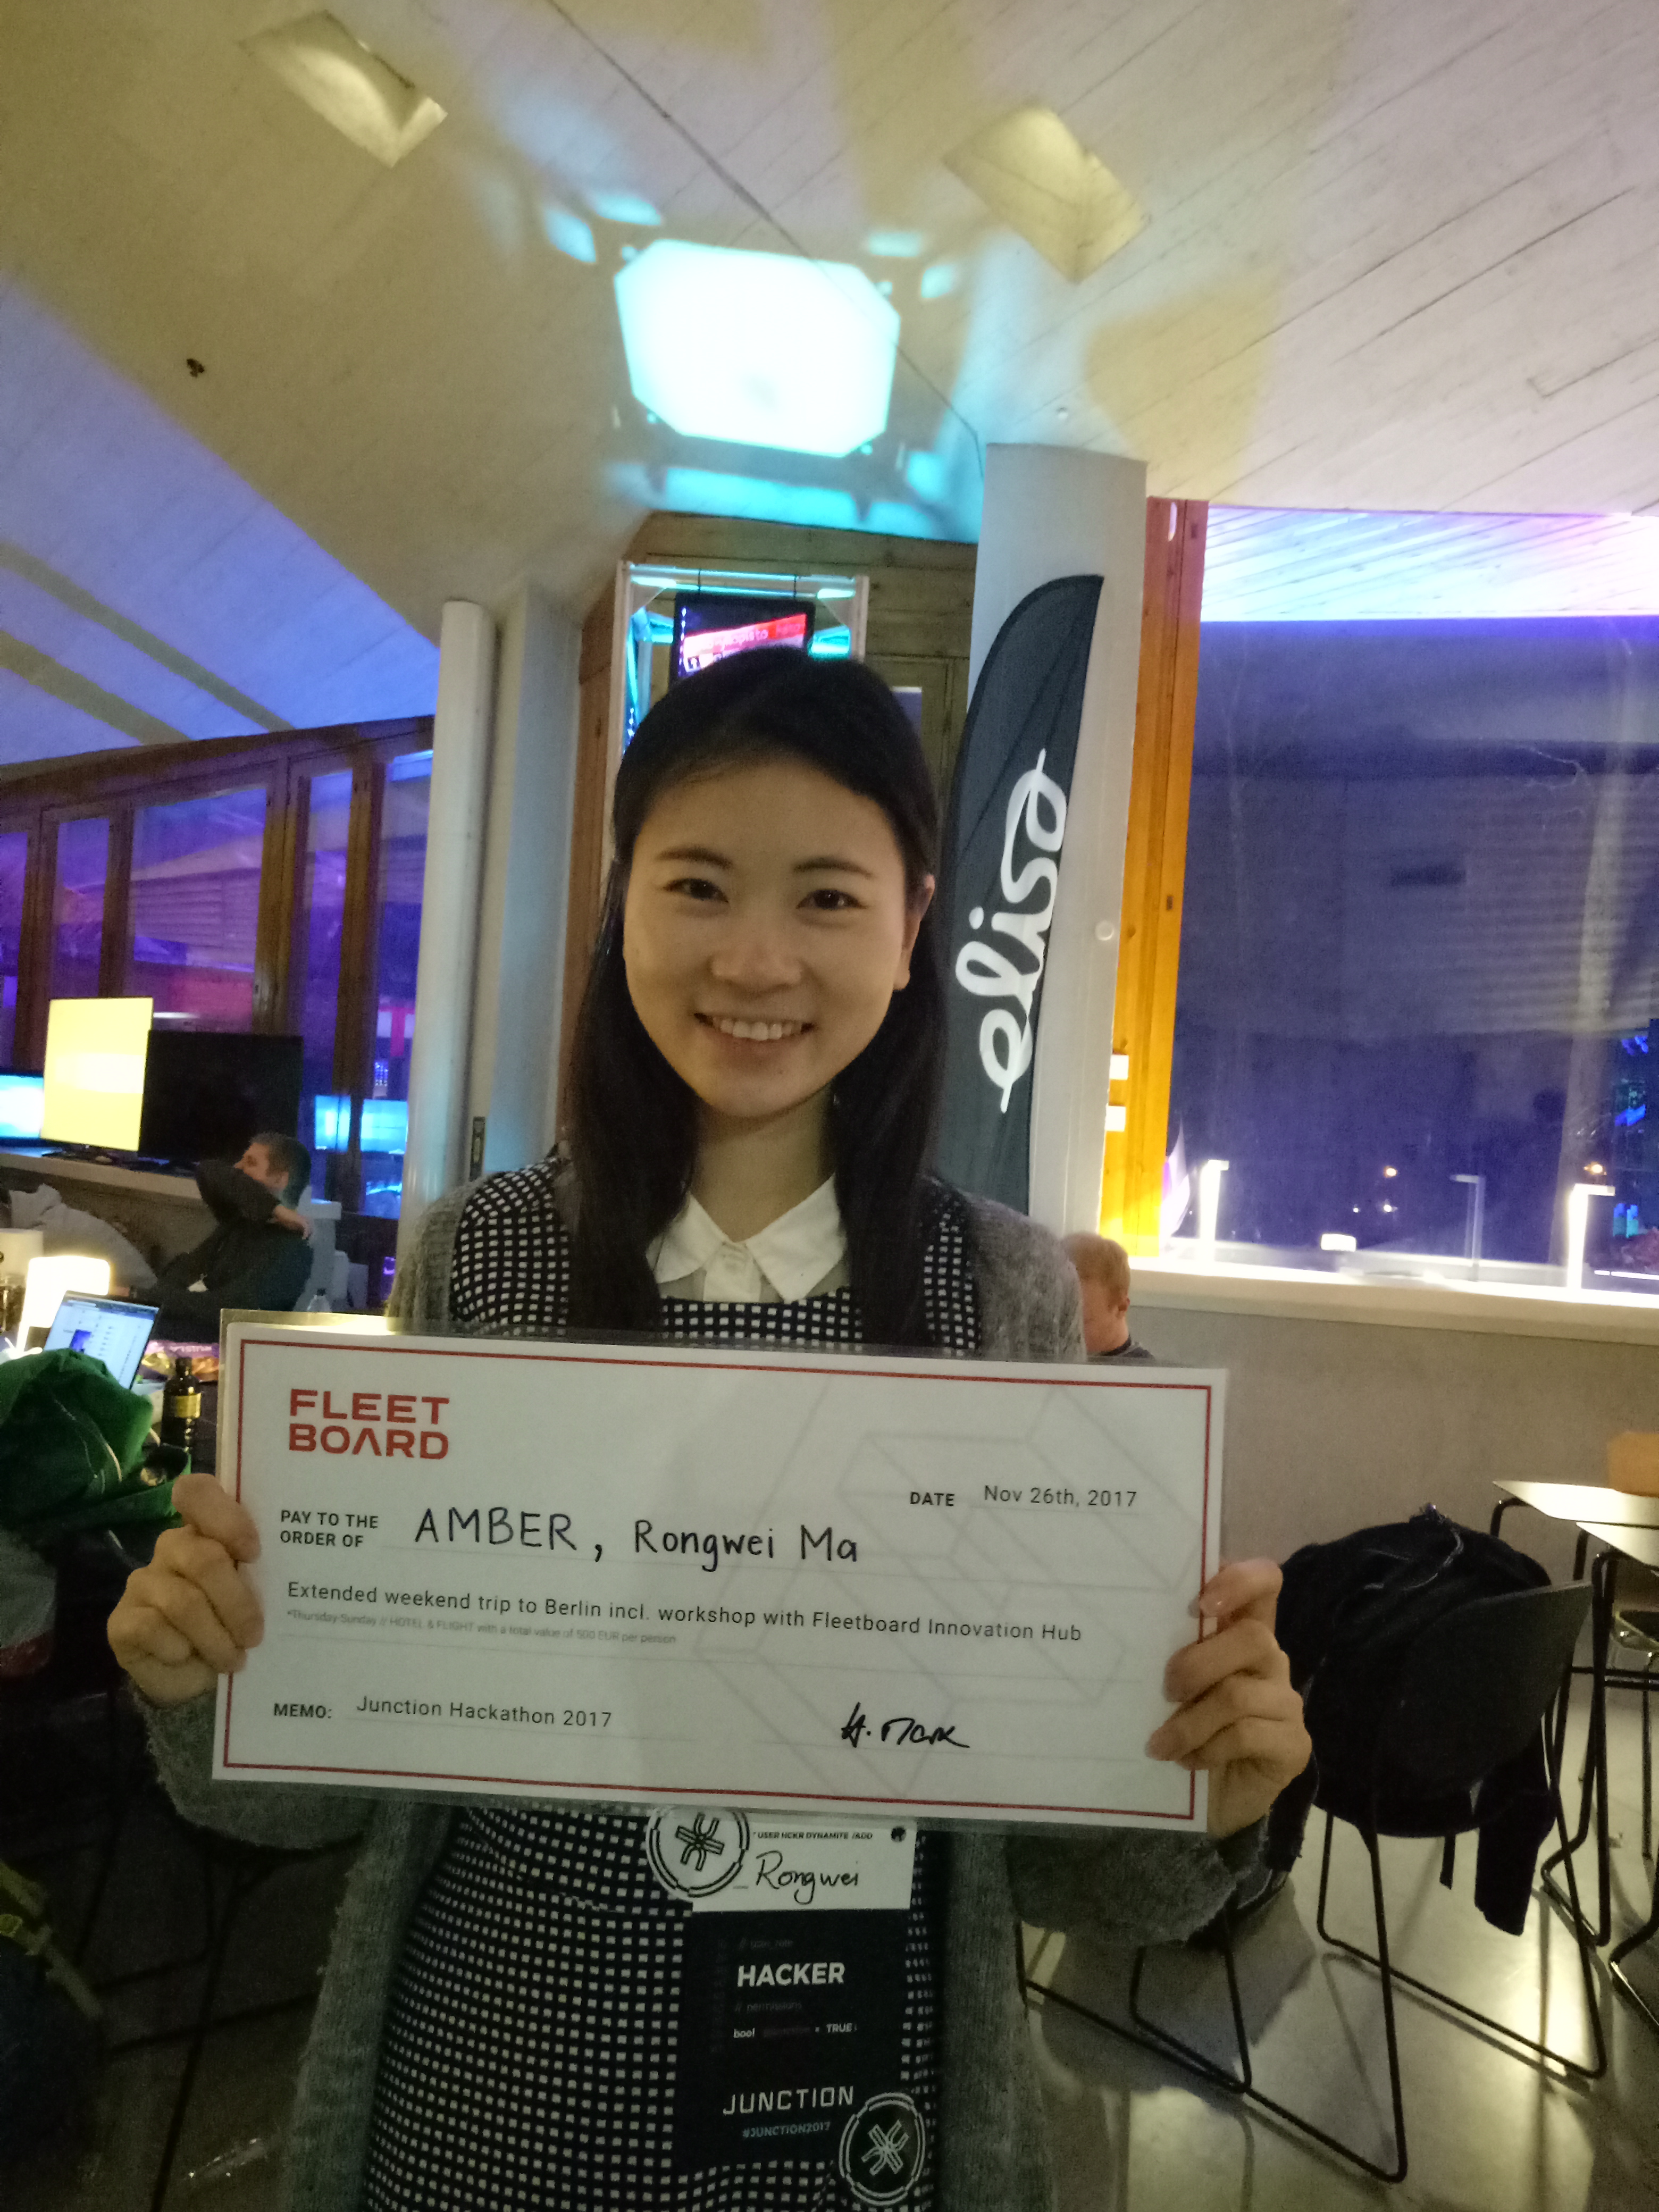 elisa
FLEET
BOARD
DATE Nov 26th, 2017
PAY TO THE
ORDER OF AMBER, Rongwei Ma
Extended weekend trip to Berlin incl. workshop with Fleetboard Innovation Hub
*Thursday-Sunday // HOTEL & FLIGHT with a total value of 500 EUR per person
MEMO: Junction Hackathon 2017
USER HCKR DYNAMITE /ADD
Rongwei
HACKER
// permissions
bool = TRUE;
JUNCTION
#JUNCTION2017